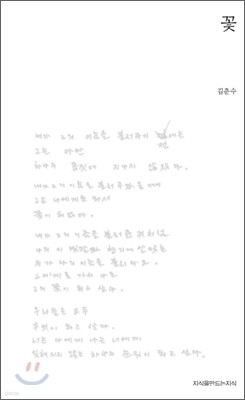 꽃
김춘수
내가 그의 이름을 불러주기 전에는
그는 다만
하나의 몸짓에 지나지 않았다.
내가 그의 이름을 불러주었을 때
그는 나에게로 와서
꽃이 되었다.
내가 그의 이름을 불러준 것처럼
나의 이 빛깔과 향기에 알맞은
누가 나의 이름을 불러다오.
그에게로 가서 나도
그의 꽃이 되고 싶다.
우리들은 모두
무엇이 되고 싶다.
너는 나에게 나는 너에게
잊혀지지 않는 하나의 눈짓이 되고 싶다.
지식을만드는지식